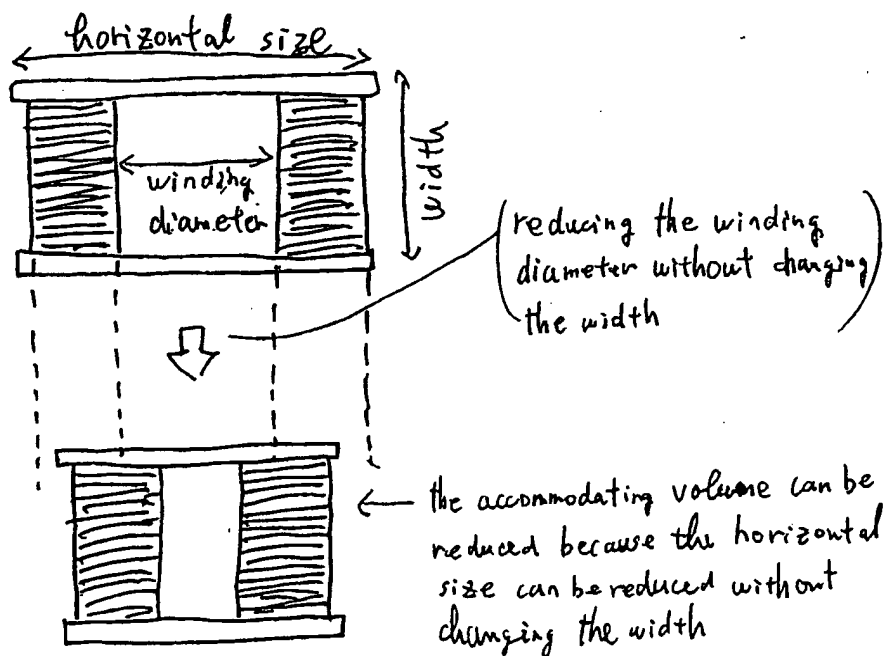 horizontal size
winding
diameter
width
(reducing the winding
diameter without changing
the width)
the accommodating volume can be
reduced because the horizontal
size can be reduced without
changing the width